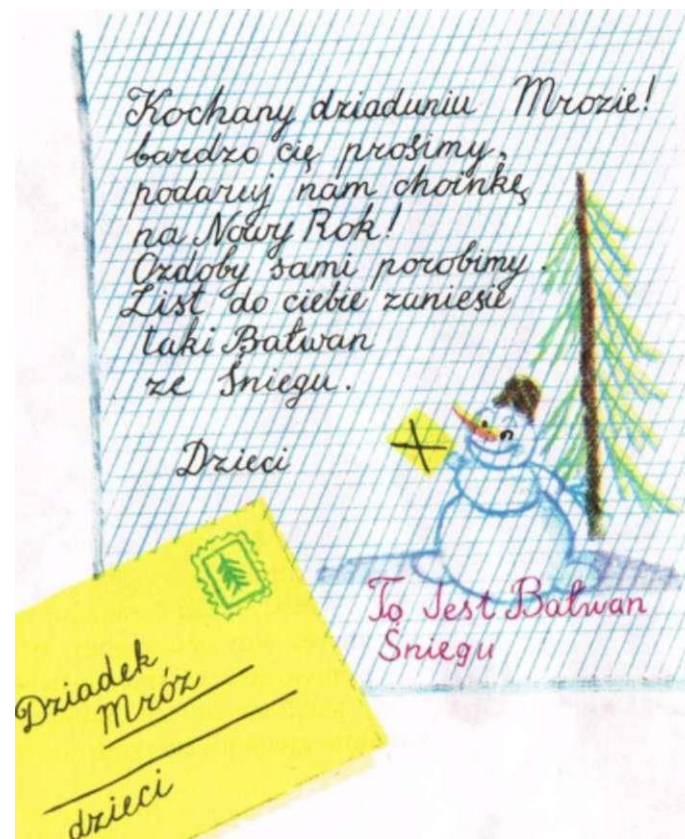 Kochany dziaduniu Mrozie!
bardzo cię prosimy,
podaruj nam choinkę
na Nowy Rok!
Ozdoby sami porobimy.
List do ciebie zaniesie
taki Bałwan
ze Śniegu.
Dzieci
To Jest Bałwan
Śniegu
Dziadek
Mróz
dzieci